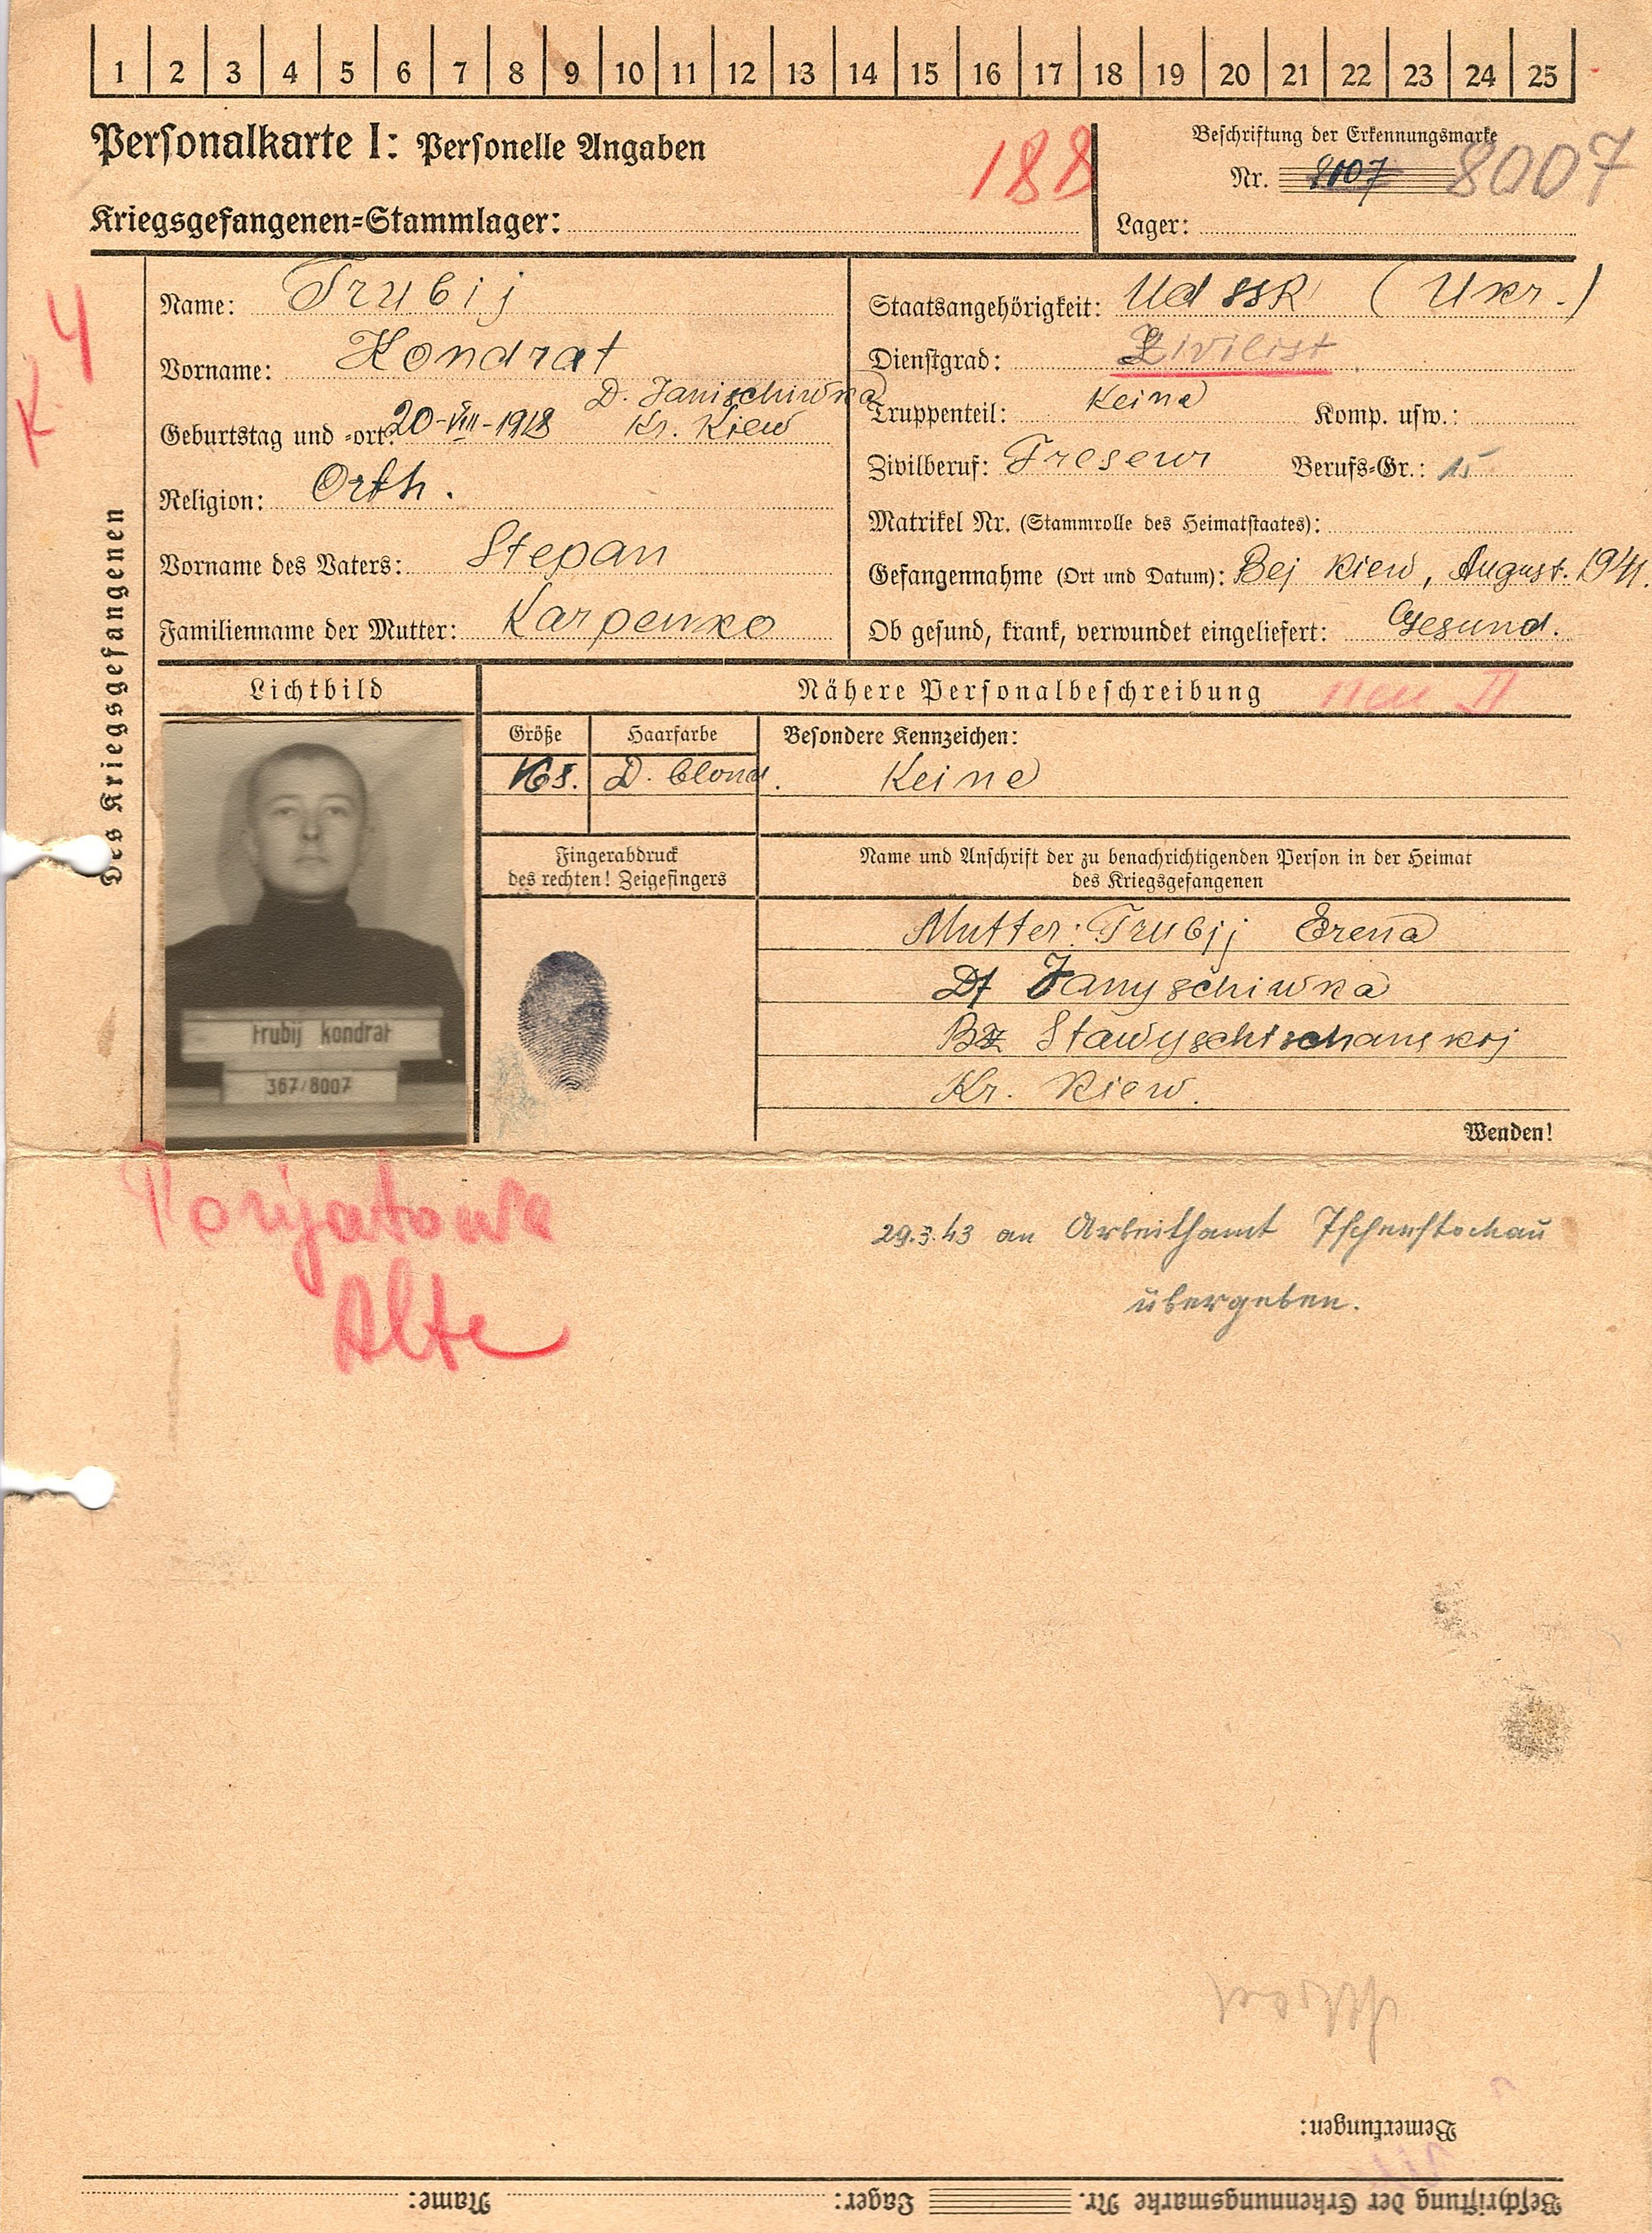 1 2 3 4 5 6 7 8 9 10 11 12 13 14 15 16 17 18 19 20 21 22 23 24 25
Personalkarte I: Personelle Angaben
188
Beschriftung der Erkennungsmarke
Nr. 8007 8007
Kriegsgefangenen=Stammlager:
Lager:
K 4
Des Kriegsgefangenen
Name: Trubij
Vorname: Kondrat
Geburtstag und =ort: 20-VIII-1918 D. Janischiwka
Kr. Kiew
Religion: Orth.
Vorname des Vaters: Stepan
Familienname der Mutter: Karpenko
Staatsangehörigkeit: UdSSR (Ukr.)
Dienstgrad: Zivilist
Truppenteil: Keine Komp. usw.:
Zivilberuf: Freseur Berufs=Gr.: 15
Matrikel Nr. (Stammrolle des Heimatstaates):
Gefangennahme (Ort und Datum): Bej Kiew, August. 1941.
Ob gesund, krank, verwundet eingeliefert: Gesund.
Lichtbild
Nähere Personalbeschreibung neu II
Größe Haarfarbe Besondere Kennzeichen:
168. D. blond. Keine
Fingerabdruck
des rechten! Zeigefingers
Name und Anschrift der zu benachrichtigenden Person in der Heimat
des Kriegsgefangenen
Mutter: Trubij Erena
Df Janyschiwka
Bz Stawyschtschanskoj
Kr. Kiew.
trubij kondrat
367/8007
Wenden!
Ponjatowa
Alte
29.3.43 an Arbeitsamt Tschenstochau
übergeben.
Bemerkungen:
Beschriftung der Erkennungsmarke Nr. Lager: Name: